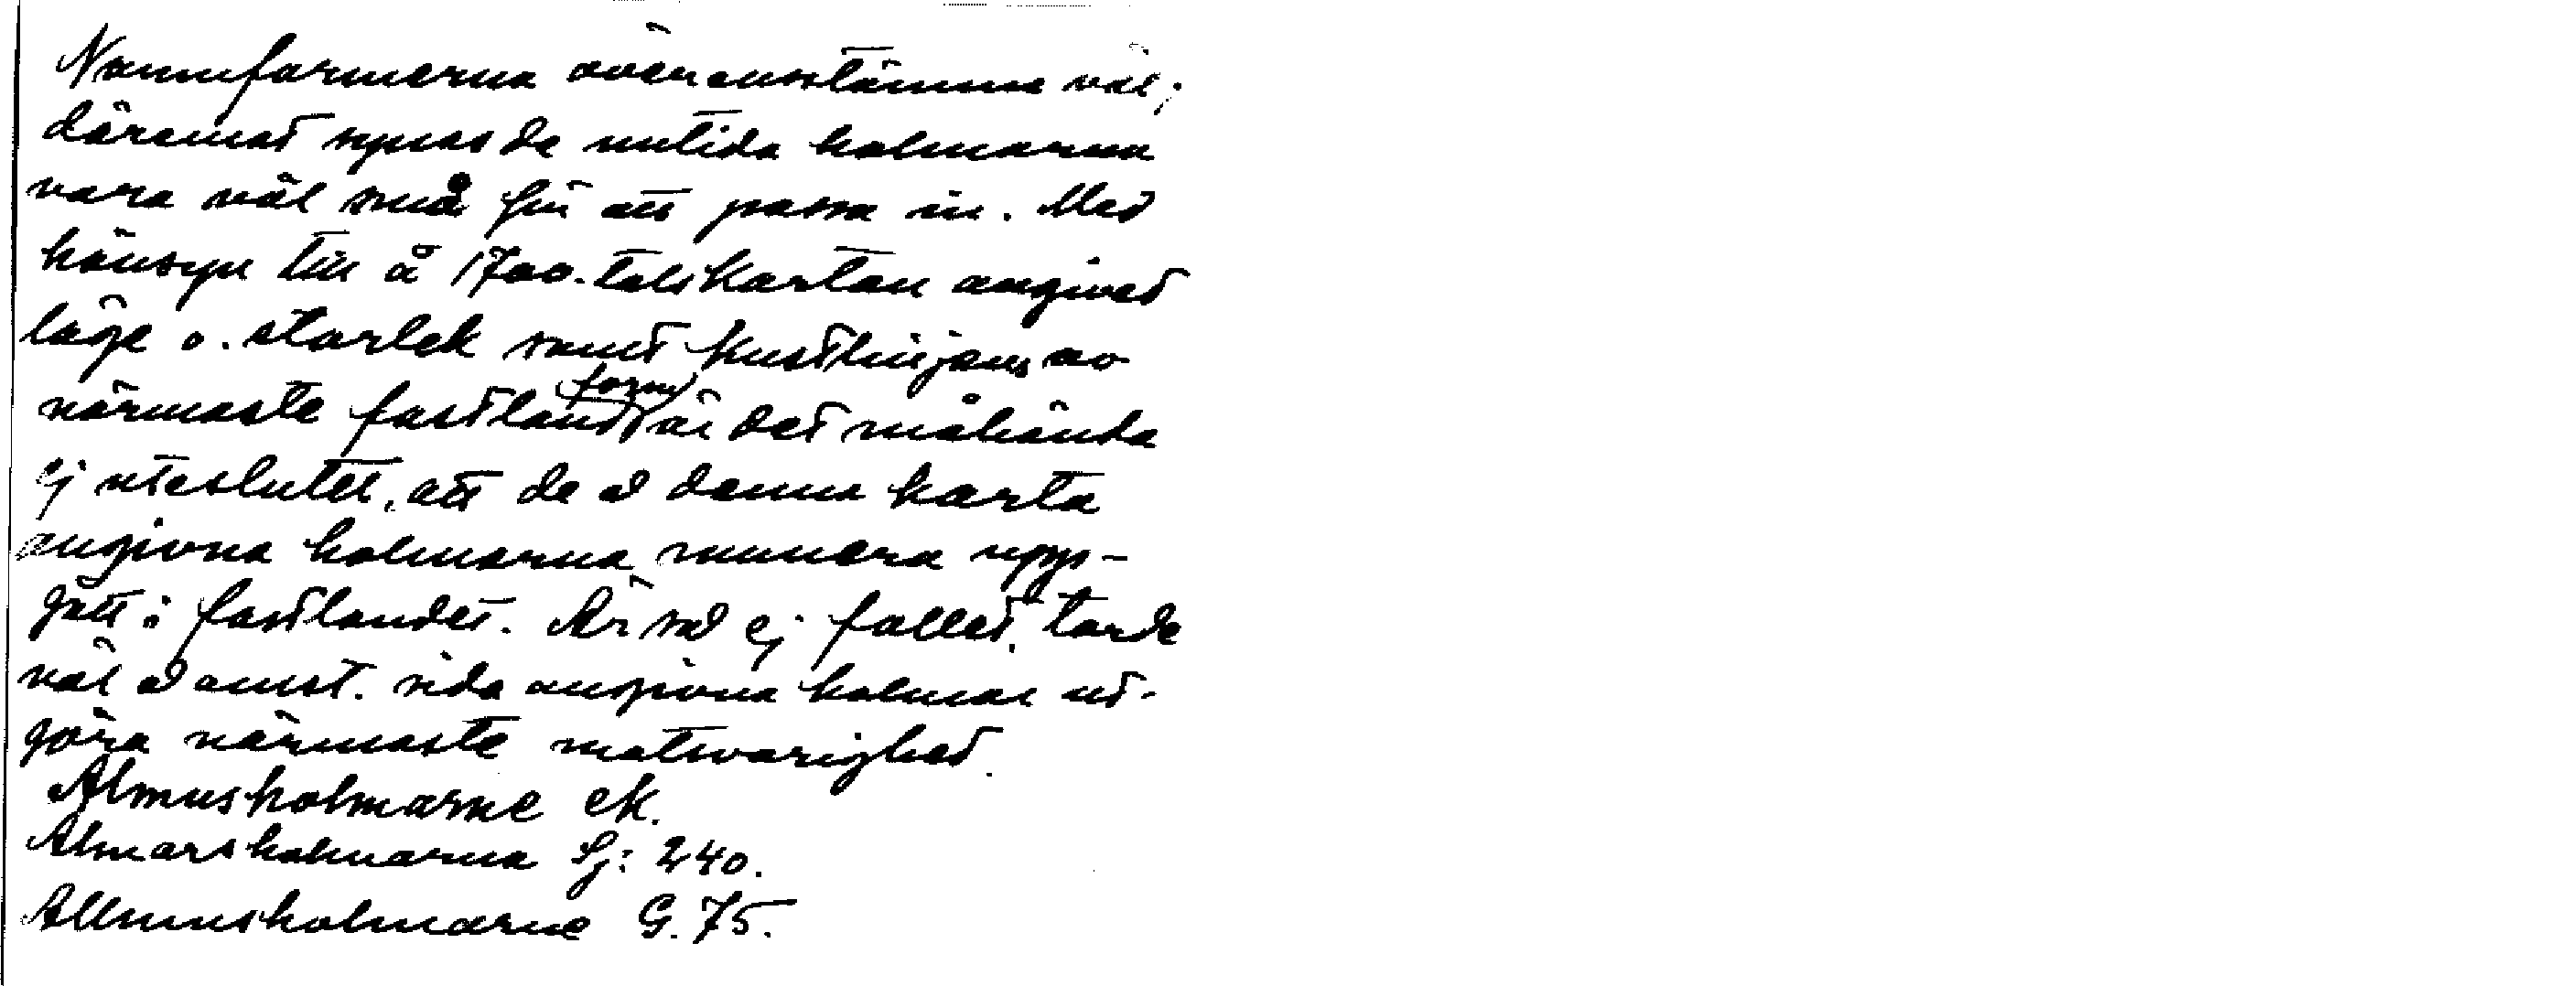 Namnformerna överensstämma väl;
däremot synas de nutida holmarna
vara väl små för att passa in. Med
hänsyn till å 1700-talskartan angivet
läge o. storlek samt kustlinjens av
närmaste fastland (form) är det måhända
ej uteslutet, att de å denna karta
angivna holmarna numera upp-
gått i fastlandet. Är så ej fallet, torde
väl å omst. sida angivna holmar ut-
göra närmaste motsvarighet.
Almusholmarne ek.
Almarsholmarna Sj: 240.
Allmusholmarne G. 75.